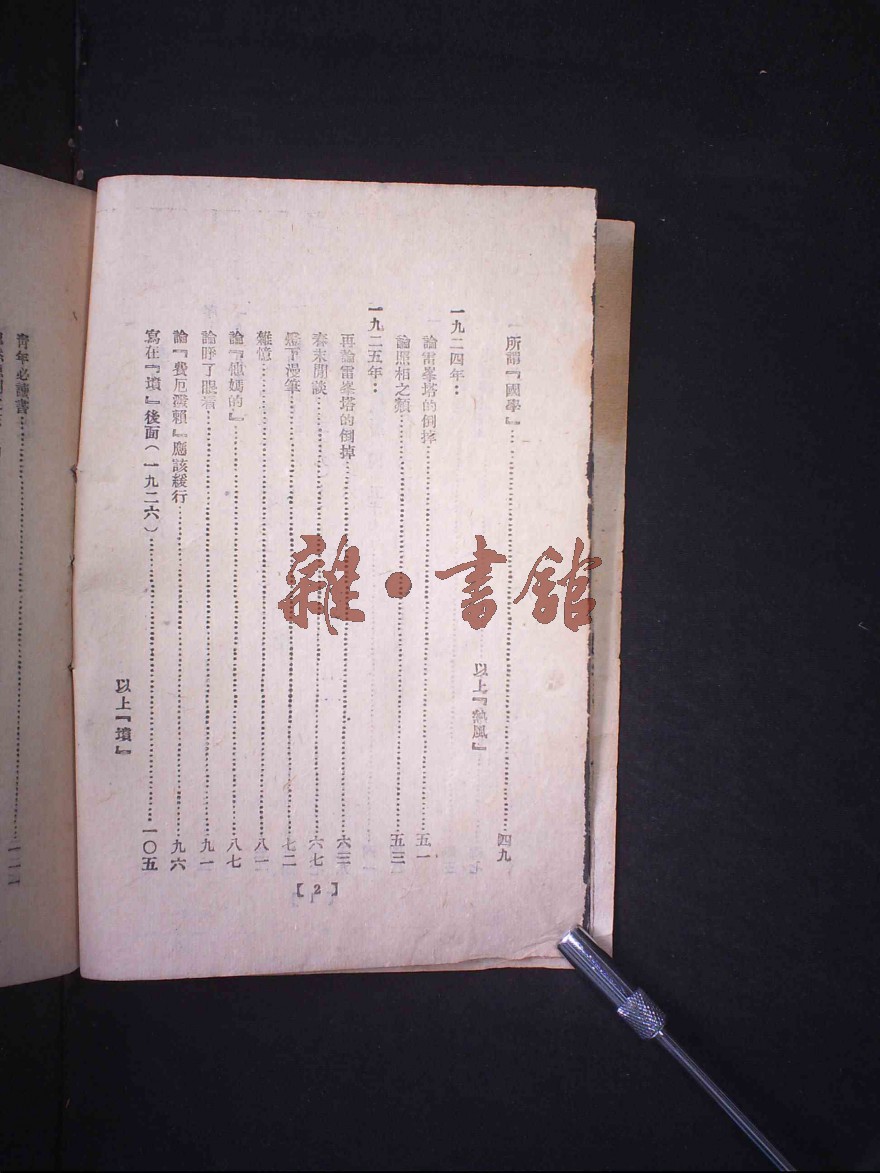 所謂『國學』……四九
以上『熱風』
一九二四年：
論雷峯塔的倒掉……五一
論照相之類……五三
一九二五年：
再論雷峯塔的倒掉……六三
春末閒談……六七
燈下漫筆……七二
雜憶……八一
論『他媽的』……八七
論睜了眼看……九一
論『費厄潑賴』應該緩行……九六
寫在『墳』後面（一九二六）……一〇五
以上『墳』
【2】
青年必讀書……
雜·書館